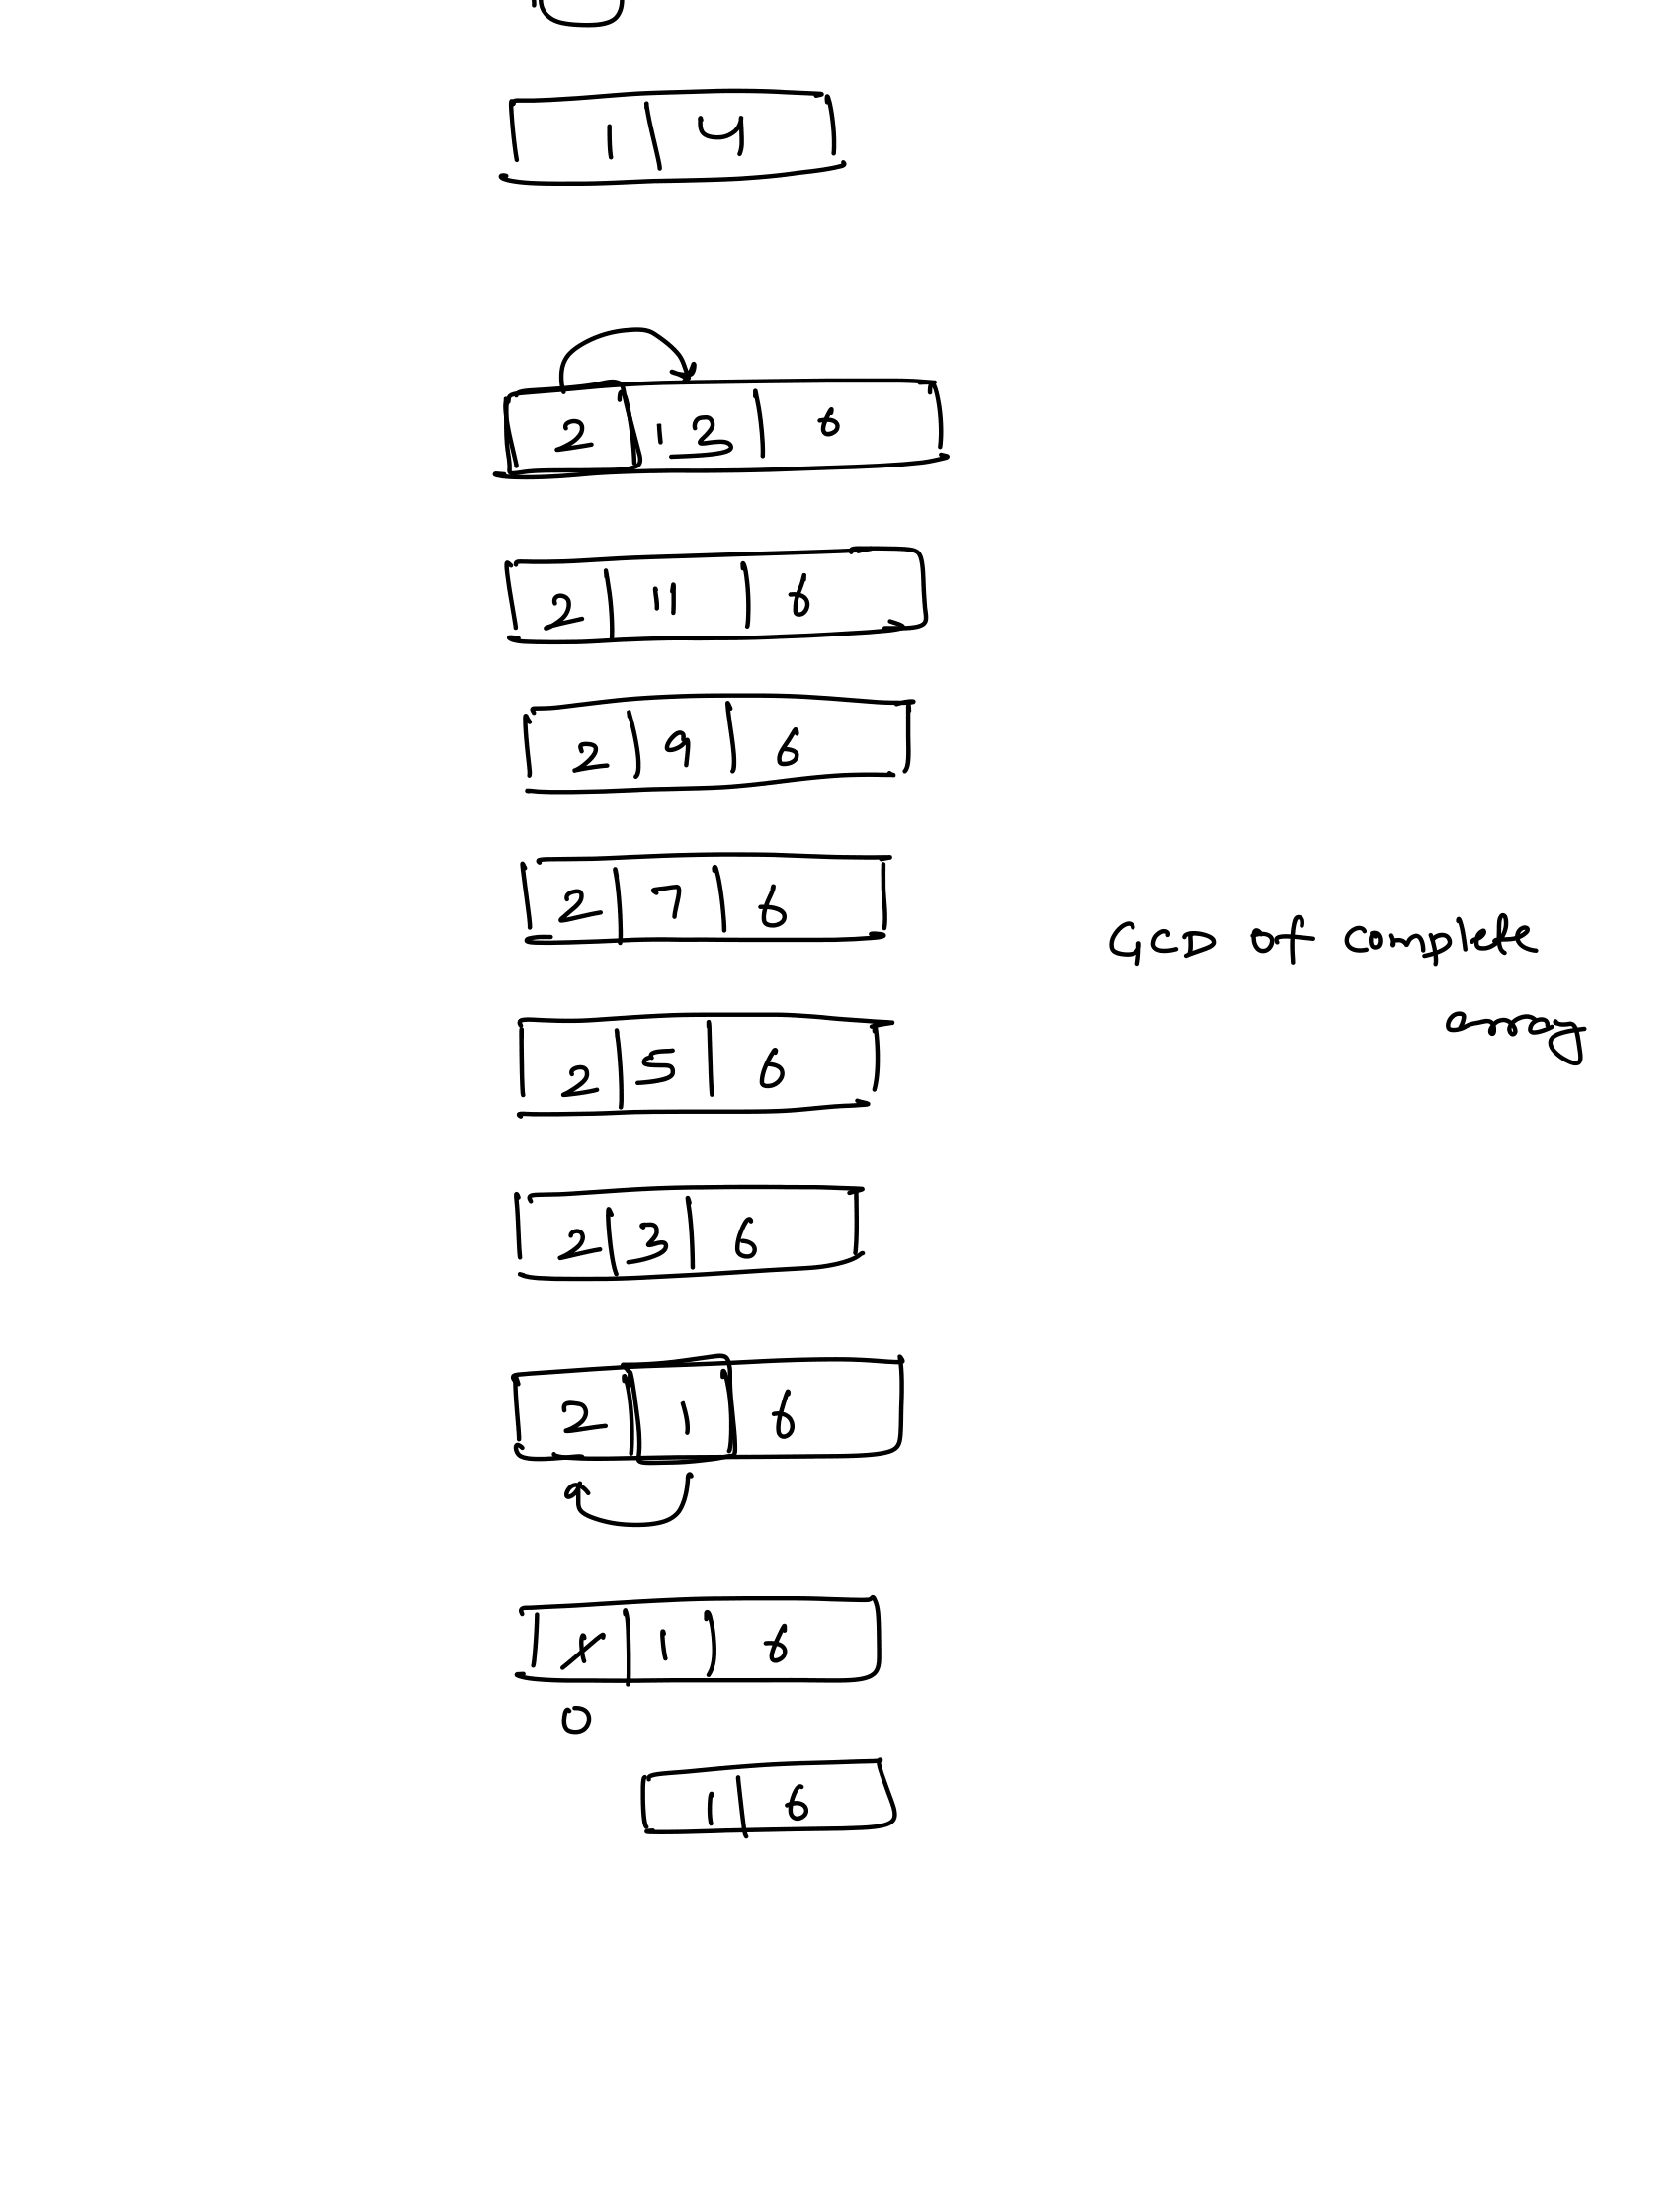 1 4
2 13 6
2 11 6
2 9 6
2 7 6
GCD of complete
array
2 5 6
2 3 6
2 1 6
1 1 6
0
1 6